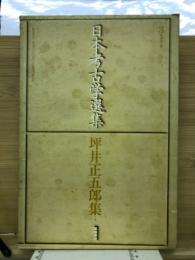 日本考古学選集
坪井正五郎集